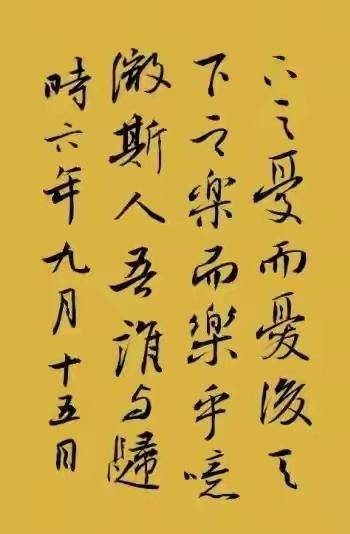 下之憂而憂後天
下之樂而樂乎噫
微斯人吾誰与歸
時六年九月十五日